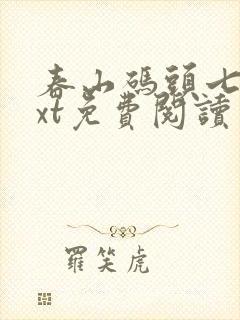 春山碼頭七
xt免費閱讀
羅笑虎